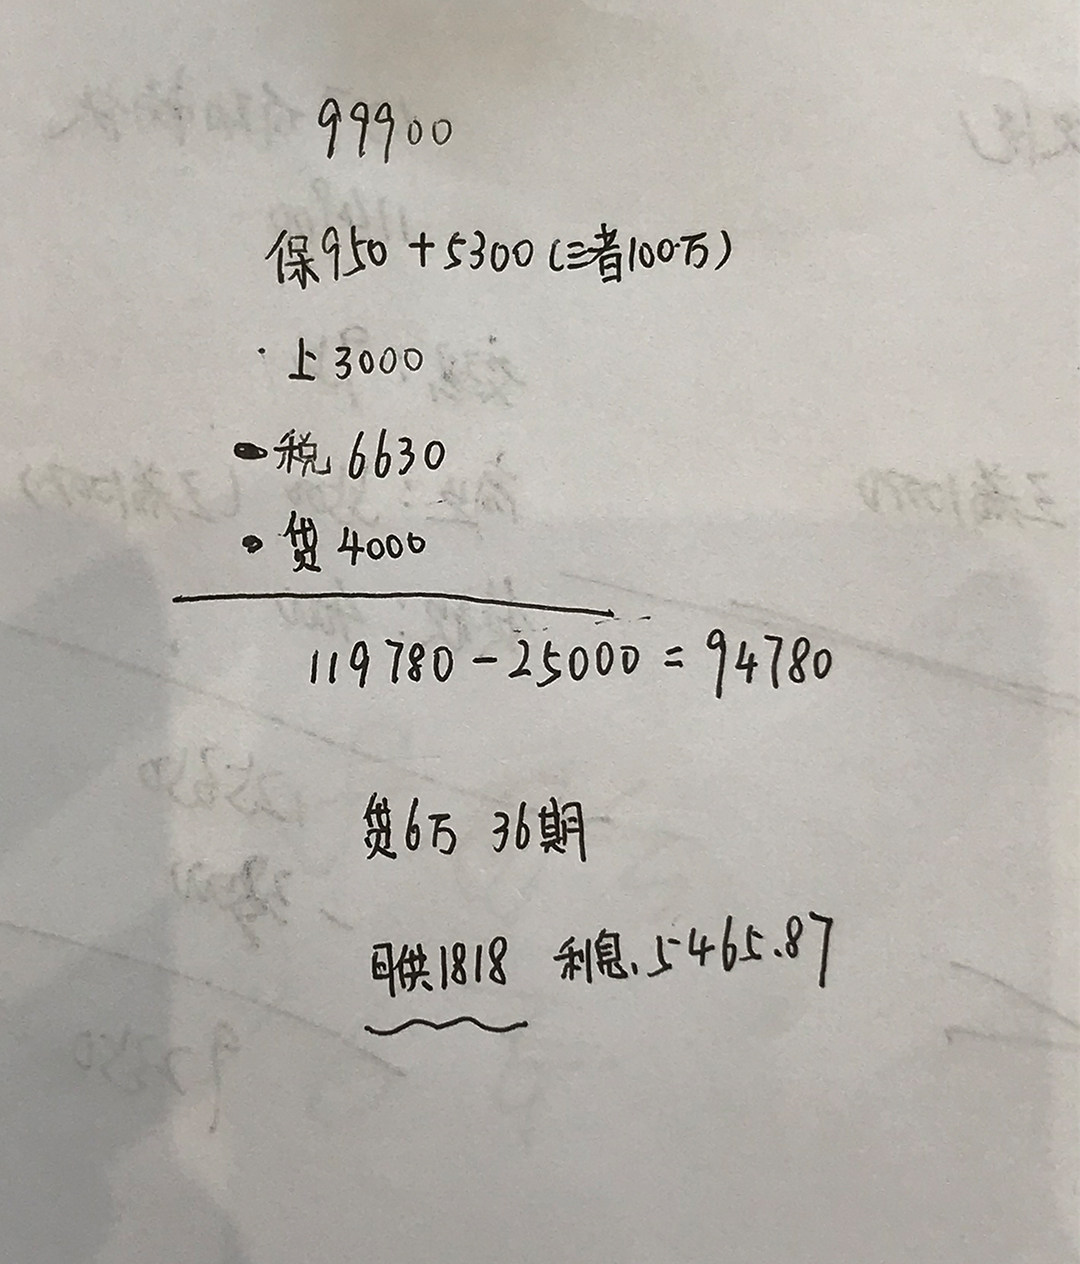 99900
保950+5300(三者100万)
·上3000
·税6630
·贷4000
119780-25000=94780
贷6万 36期
月供1818 利息.5465.87